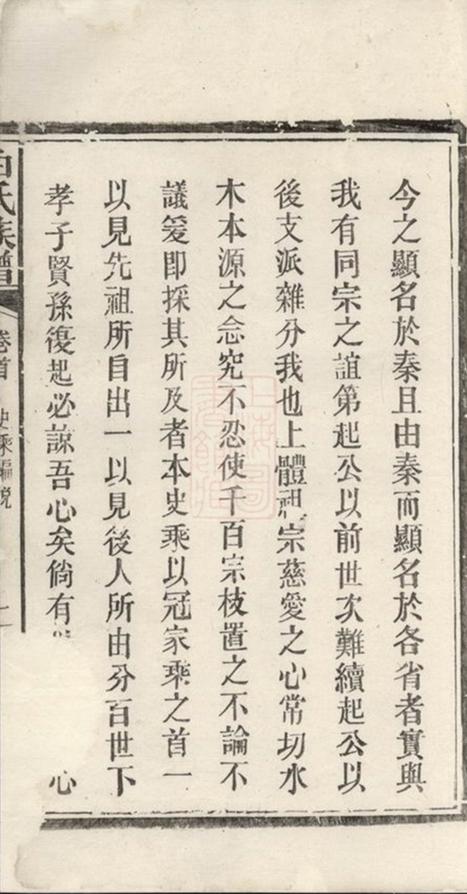 今之顯名於秦且由秦而顯名於各省者實與
我有同宗之誼第起公以前世次難續起公以
後支派雜分我也上體祖宗慈愛之心常切水
木本源之念究不忍使千百宗枝置之不論不
議爰即採其所及者本史乘以冠家乘之首一
以見先祖所自出一以見後人所由分百世下
孝子賢孫復起必諒吾心矣倘有
心
白氏族譜
卷首
史乘編說
上海圖書館藏